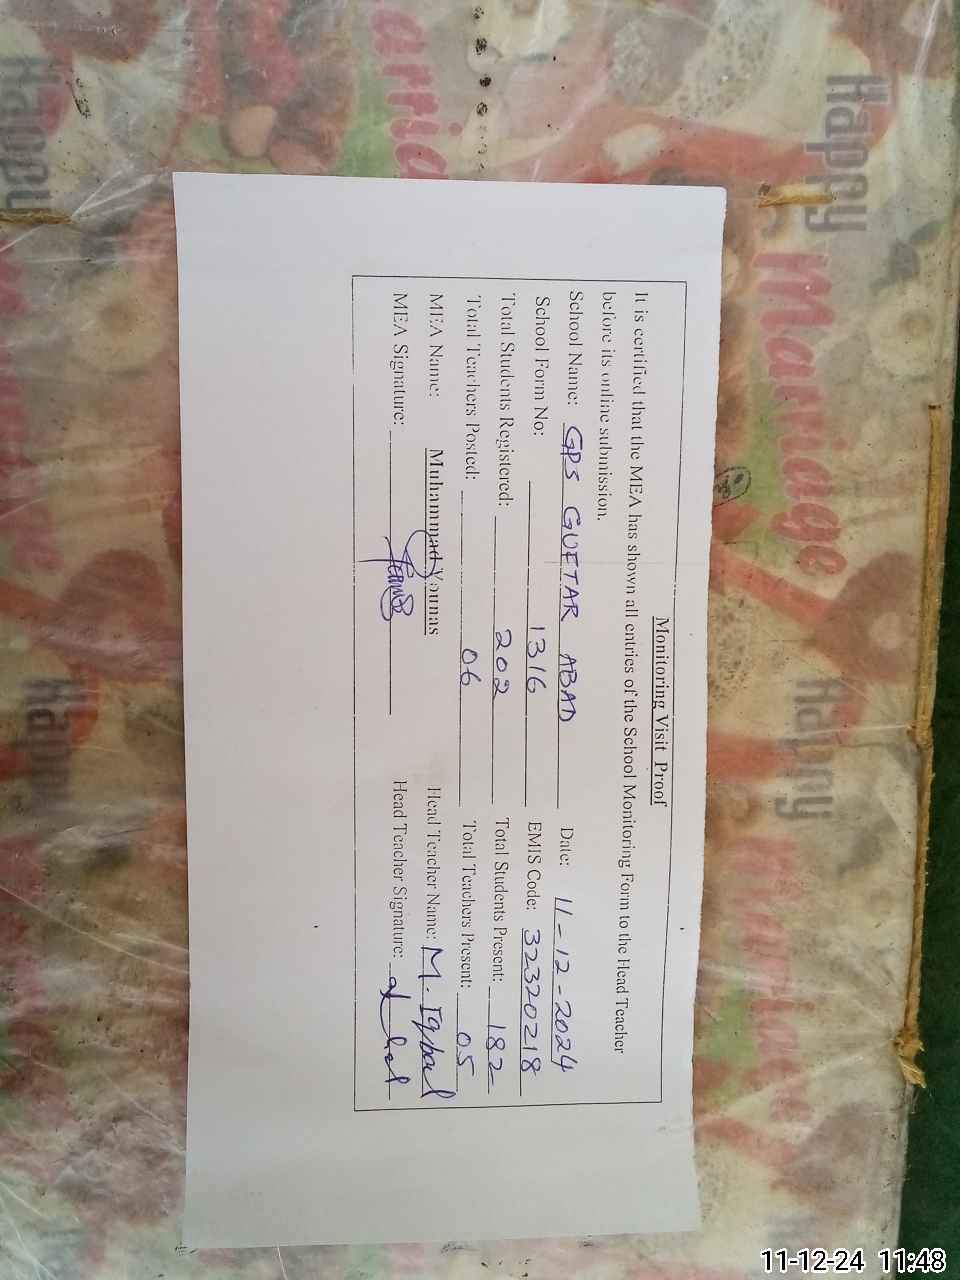 Monitoring Visit Proof
It is certified that the MEA has shown all entries of the School Monitoring Form to the Head Teacher
before its online submission.
School Name: GPS GUETAR ABAD Date: 11-12-2024
School Form No: 1316 EMIS Code: 32320218
Total Students Registered: 202 Total Students Present: 182
Total Teachers Posted: 06 Total Teachers Present: 05
MEA Name: Muhammad Younas Head Teacher Name: M. Iqbal
MEA Signature: Head Teacher Signature:
Happy
Marriage
Happy
Marriage
11-12-24 11:48